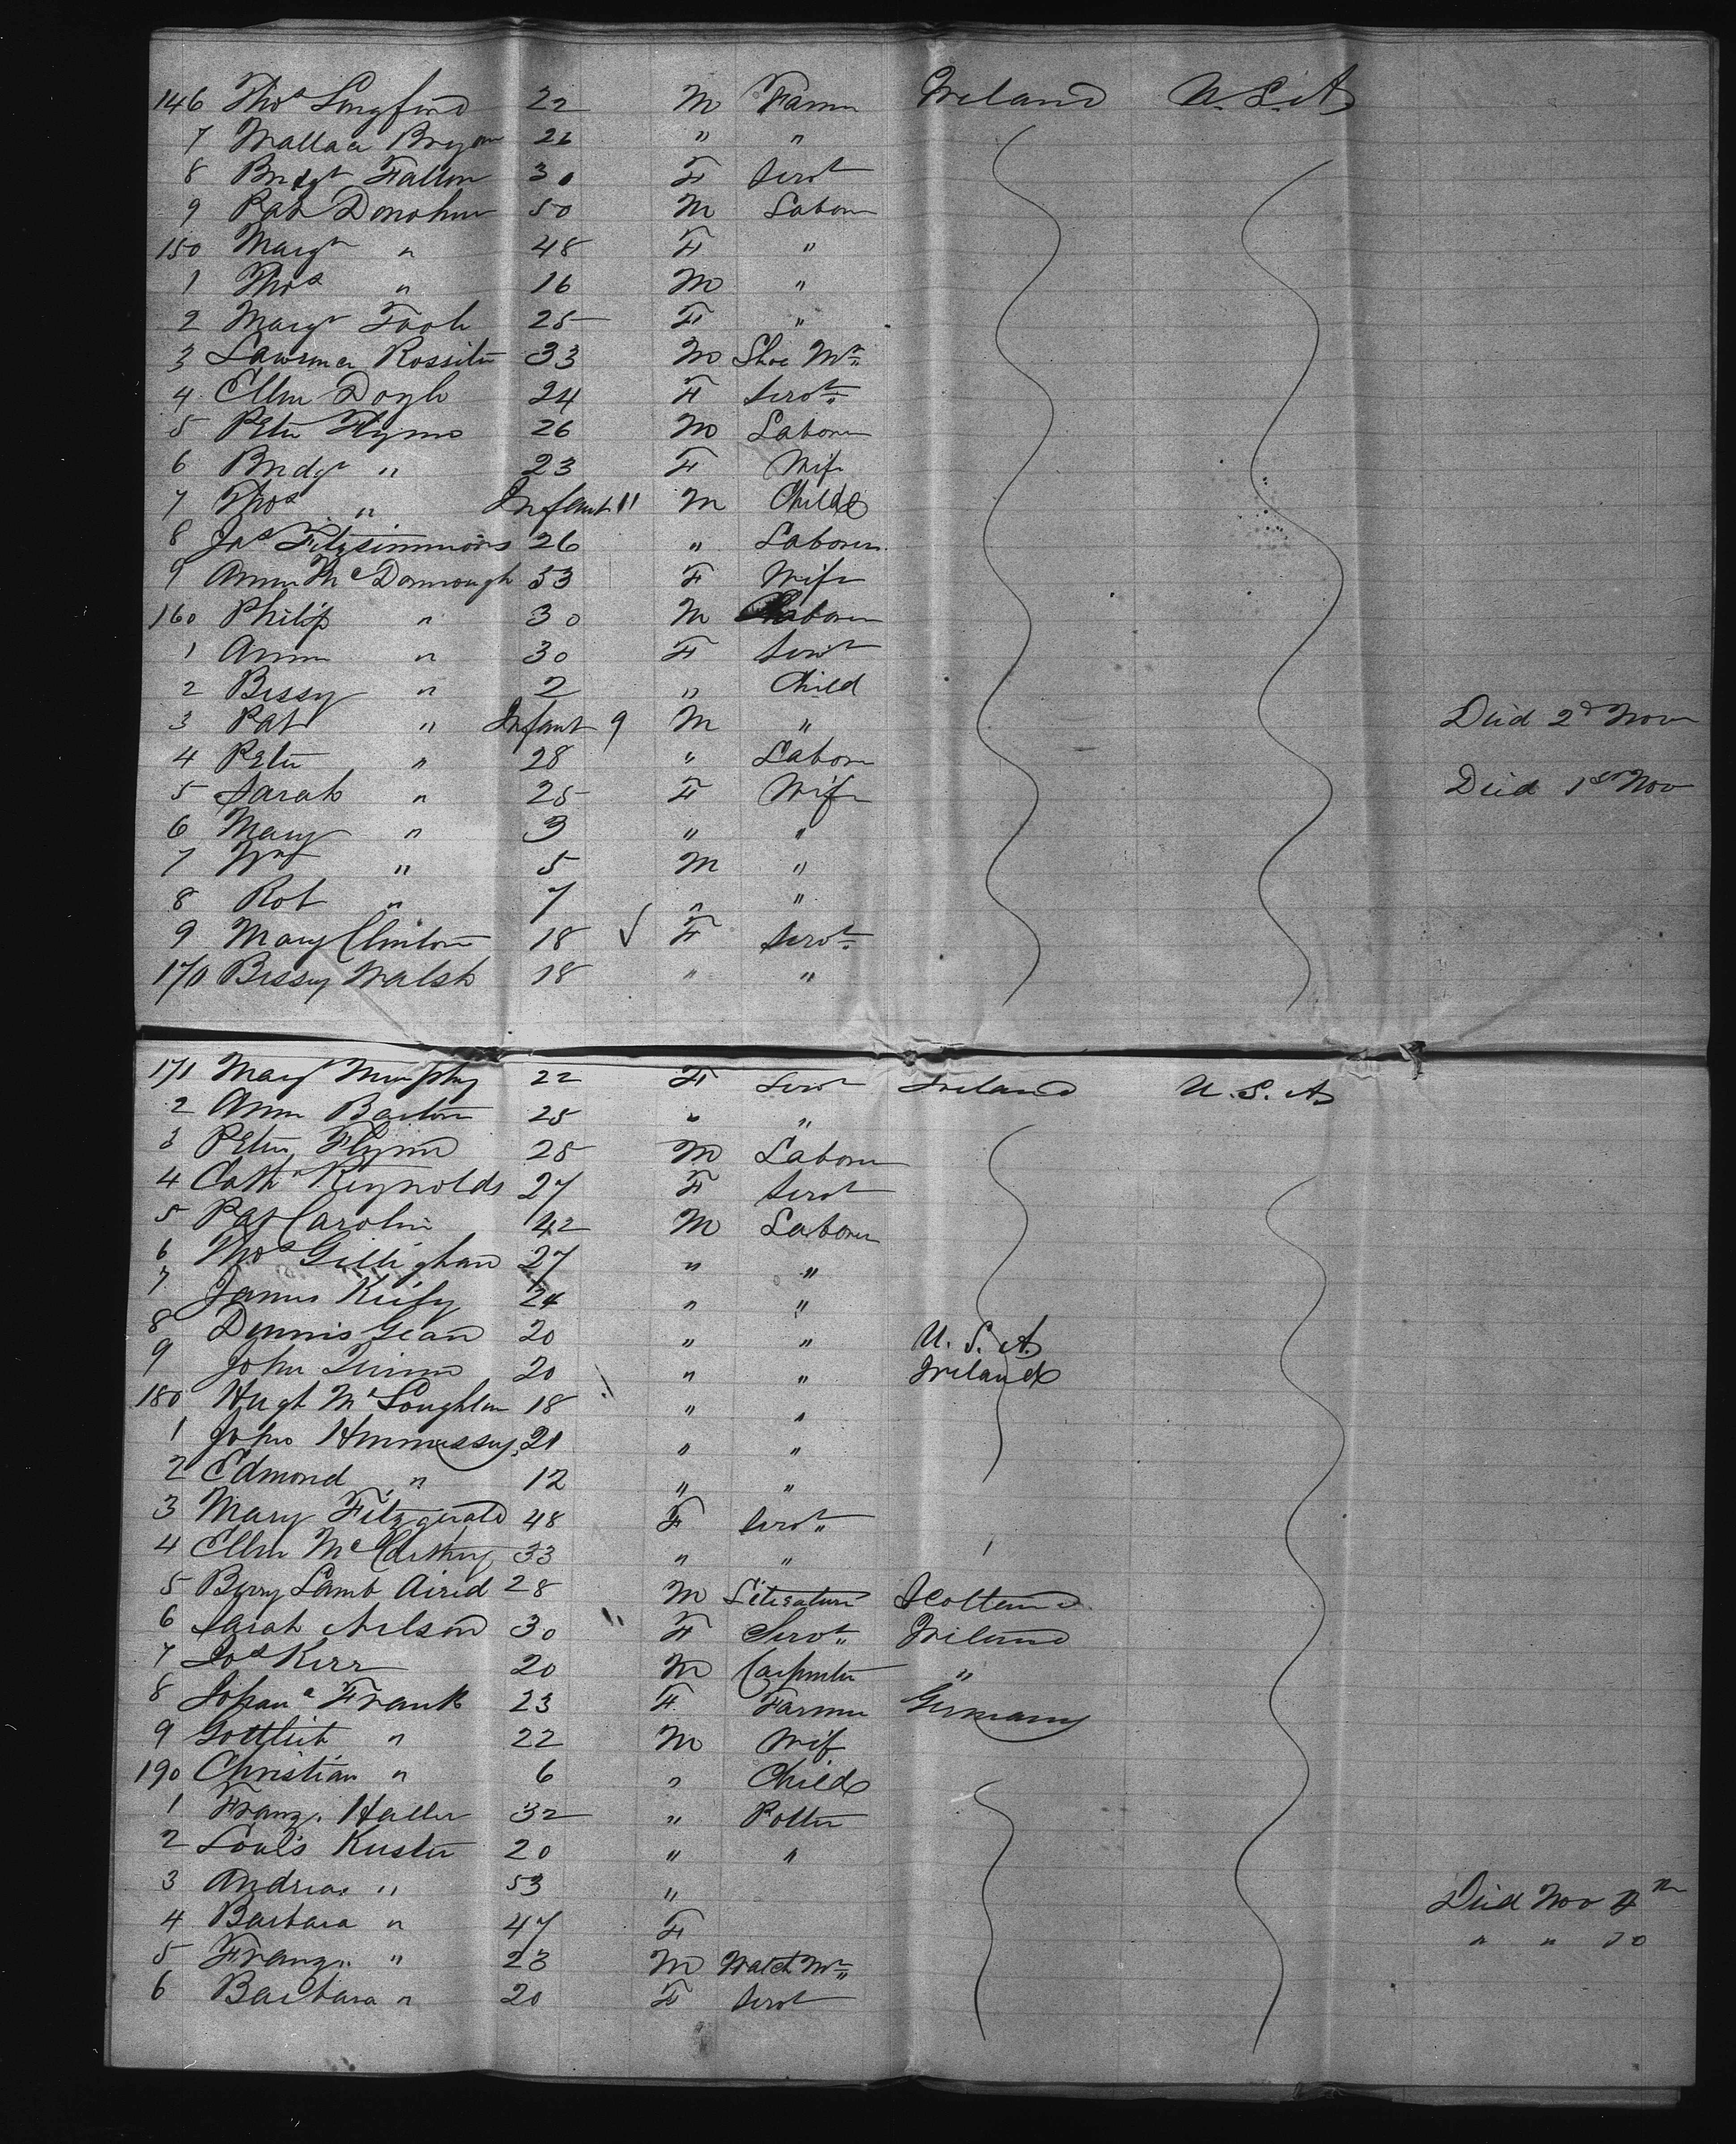 146 Thos Longford 22 M Farmr Ireland U.S.A
7 Wallace Bryan 26 " "
8 Bridgt Fallon 30 F Servt
9 Pat Donohue 50 M Labour
150 Margt " 48 F "
1 Thos " 16 M "
2 Margt 25 F "
3 Lawrence Rossiter 33 M Shoe Mr
4 Ellen Doyle 24 F Servt
5 Peter Flynn 26 M Laborer
6 Bridgt " 23 F Wife
7 Thos " Infant 11 M Child
8 Jas Fitzsimmons 26 " Laborer
9 Annn McDonnough 53 F Wife
160 Philip " 30 M Laborer
1 Annn " 30 F Servt
2 Bessy " 2 " Child
3 Pat " Infant 9 M " Died 2d Novr
4 Peter " 28 " Labour
5 Sarah " 25 F Wife Died 1st Nov
6 Mary " 3 " "
7 Wm " 5 M "
8 Rob " 7 " "
9 Mary Clinton 18 √ F Servt
170 Bessy Walsh 18 " "
171 Margt Murphy 22 F Servt Ireland U.S.A
2 Ann Barton 25 " "
3 Peter Flynn 25 M Laborer
4 Cathn Reynolds 27 F Servt
5 Pat Carolin 42 M Laborer
6 Thos Gillighan 27 " "
7 James Keify 24 " "
8 Dennis Gean 20 " " U.S.A.
9 John Quinn 20 " " Ireland
180 Hugh McLoughlin 18 " "
1 John Hennessey 21 " "
2 Edmond " 12 " "
3 Mary Fitzgerald 48 F Servt
4 Ellen McCarthy 33 " "
5 Berry Lamb Airid 28 M Literature Scotland
6 Sarah Nelson 30 F Servt Ireland
7 Jos Kerr 20 M Carpenter "
8 Johana Frank 23 F Farmer Germany
9 Gottlieb " 22 M Wife
190 Christian " 6 " Child
1 Franz Haller 32 " Potter
2 Louis Kuster 20 " "
3 Andreas " 53 " Died Nov 4th
4 Barbara " 47 F " "
5 Franz " 23 M Watch Mr
6 Barbara " 20 F Servt